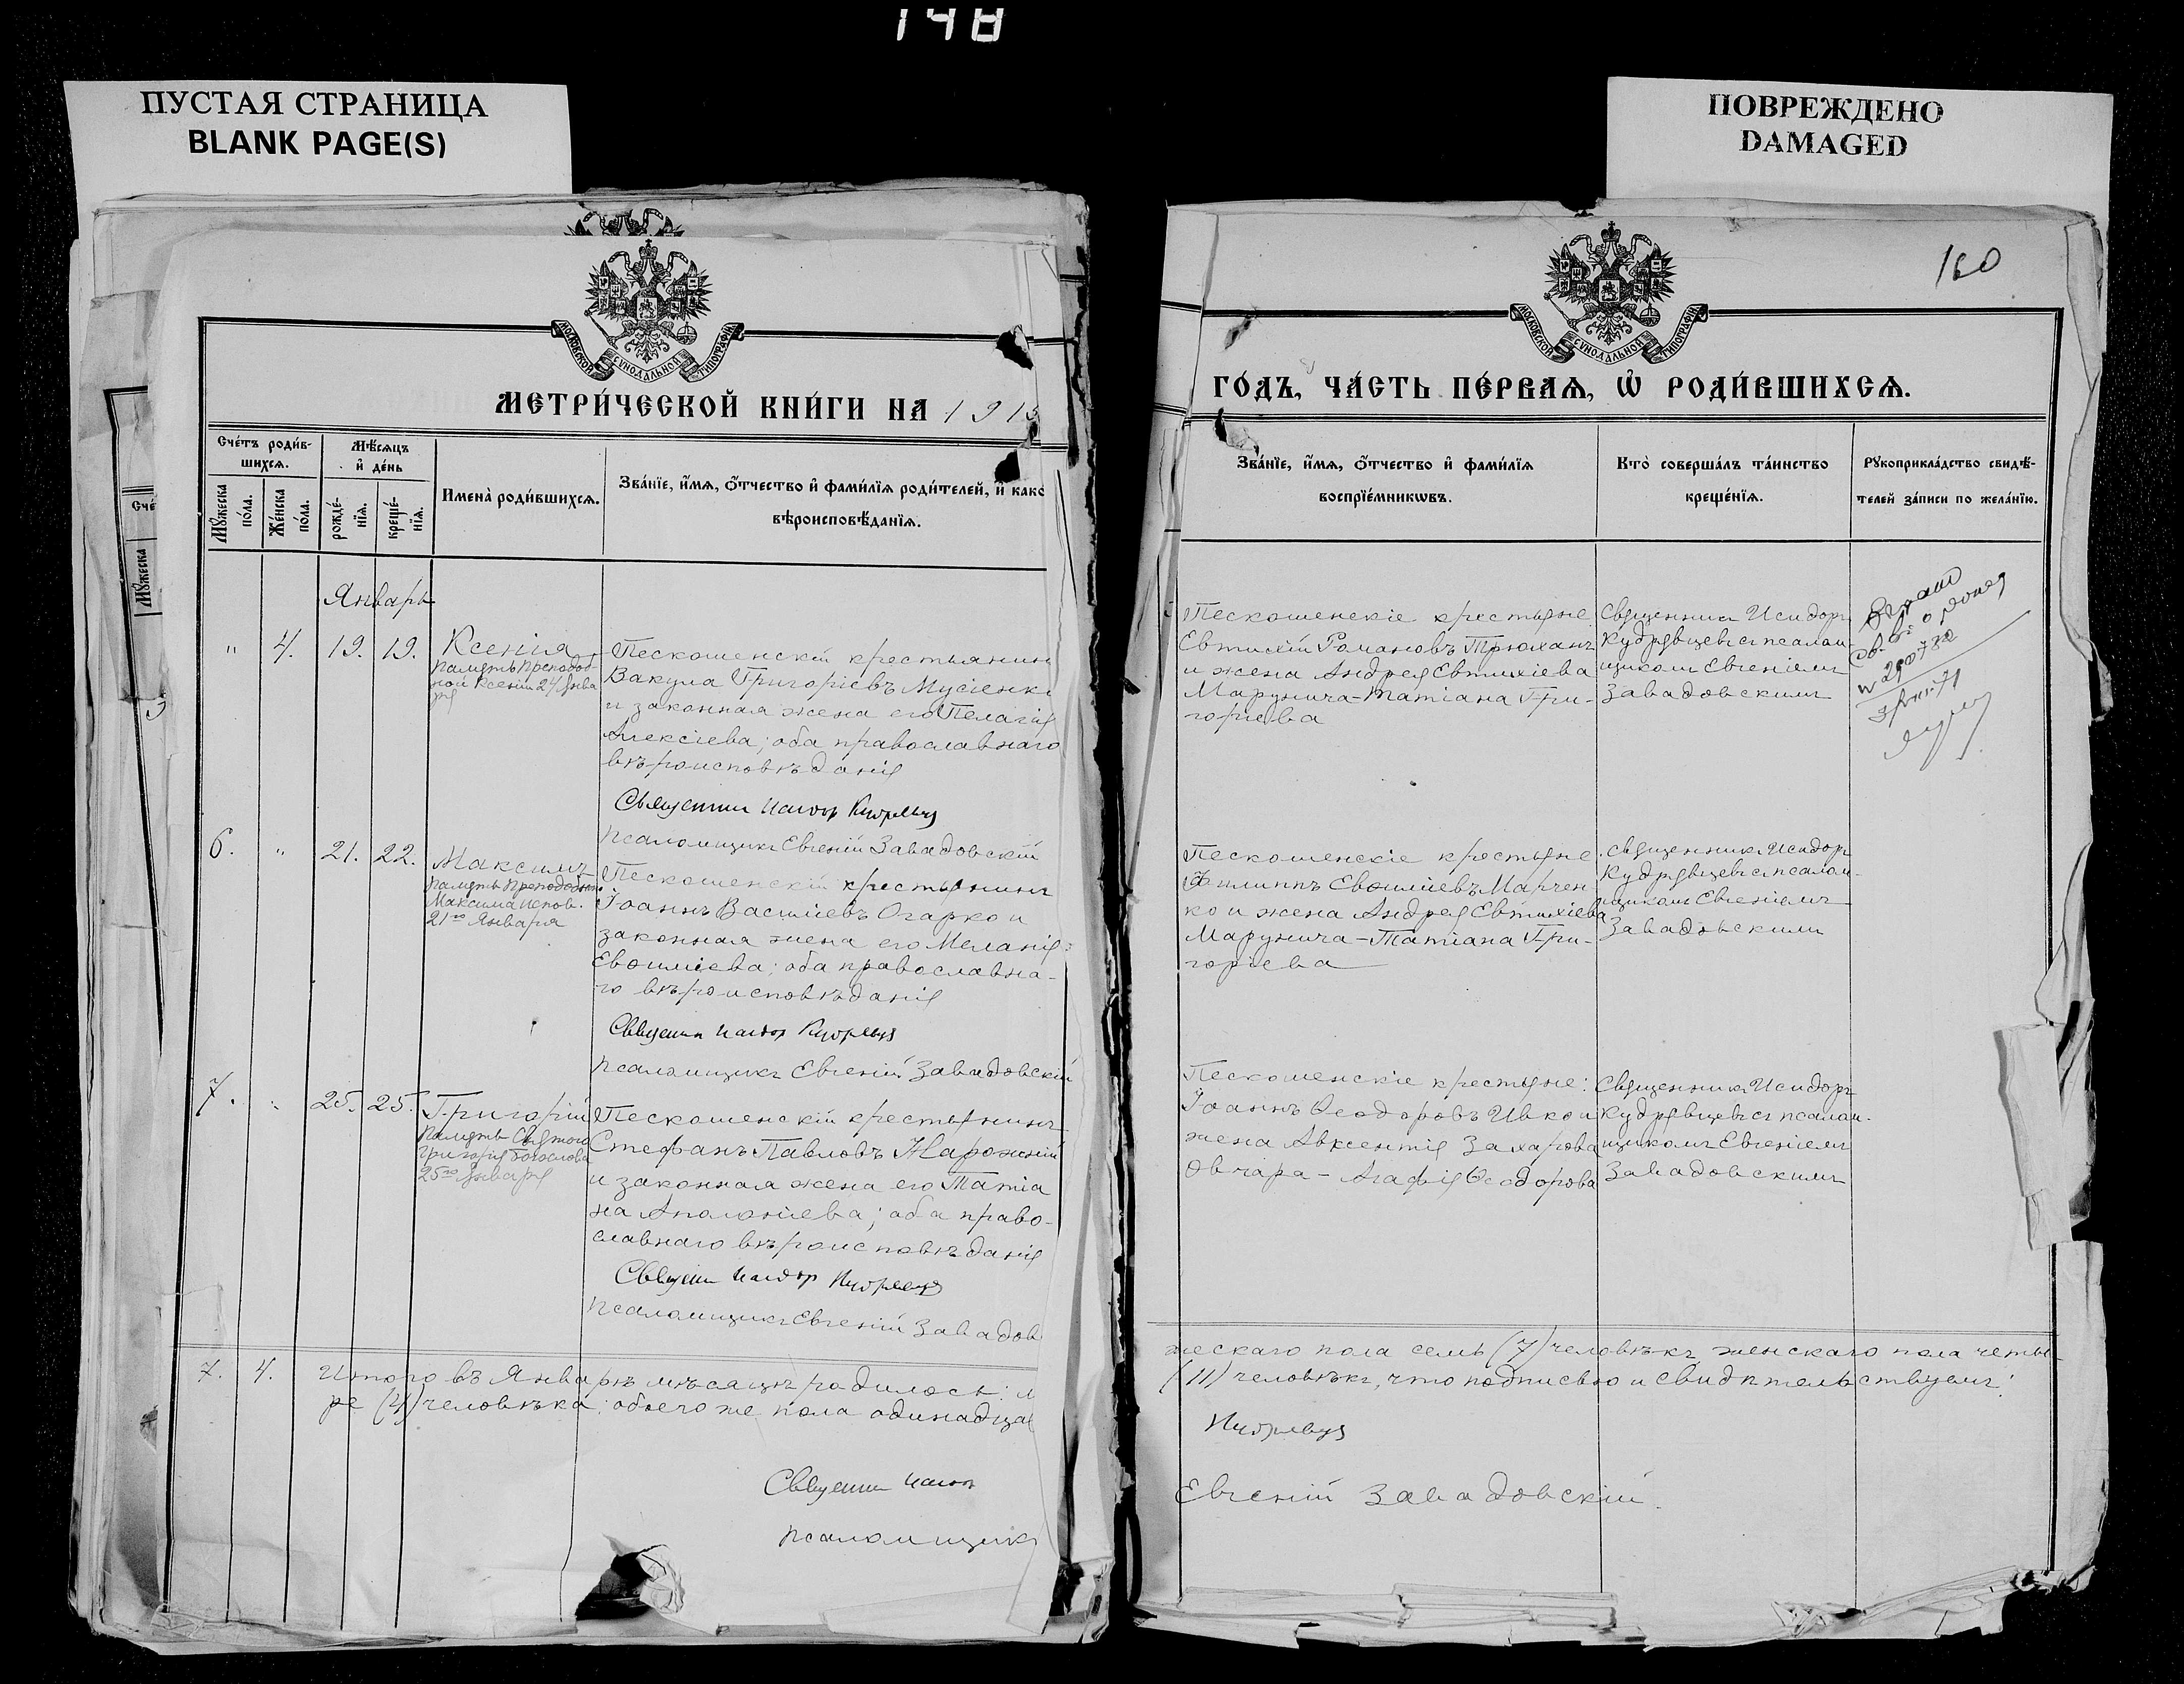 148
ПУСТАЯ СТРАНИЦА
BLANK PAGE(S)
ПОВРЕЖДЕНО
DAMAGED
160
МОСКОВСКОЙ СУНОДАЛЬНОЙ ТИПОГРАФІИ
МОСКОВСКОЙ СУНОДАЛЬНОЙ ТИПОГРАФІИ
МЕТРИ́ЧЕСКОЙ КНИ́ГИ НА 1915
ГО́ДЪ, ЧА́СТЬ ПЕ́РВАѦ, Ѡ҆ РОДИ́ВШИХСѦ.
Сче́тъ роди́в-
шихсѧ.
Мꙋ́жеска
по́ла.
Же́нска
по́ла.
Мѣ́сѧцъ
и҆ де́нь
рожде́-
нїѧ.
креще́-
нїѧ.
Имена̀ роди́вшихсѧ.
Зва́нїе, и҆́мѧ, ѻ҆́тчество и҆ фами́лїѧ роди́телей, и҆ како
вѣроисповѣ́данїѧ.
Зва́нїе, и҆́мѧ, ѻ҆́тчество и҆ фами́лїѧ
воспрїе́мникѡвъ.
Кто̀ соверша́лъ та́инство
креще́нїѧ.
Рꙋкоприкла́дство свидѣ́-
телей за́писи по жела́нїю.
Сче
Мꙋ́жеска
Январь
" 4. 19. 19.
Ксенія
Память Преподоб-
ной Ксеніи 24 Янва
ря
Пескошенскій крестьянин
Вакула Григоріевъ Мусіенко
и законная жена его Пелагія
Алексіева; оба православнаго
вѣроисповѣданія
Священник Исидор Кудрявцев
Псаломщикъ Евгеній Завадовскій
Пескошенскіе крестьяне
Евтихій Романовъ Трюханъ
и жена Андрея Евтихіева
Марунича-Татіана Гри-
горіева
Священникъ Исидоръ
Кудрявцевъ съ псалом-
щикомъ Евгеніемъ
Завадовскимъ
6. " 21. 22.
Максимъ
Память Преподобн.
Максима Испов.
21го Января
Пескошенскій крестьянинъ
Іоаннъ Василіевъ Огарко и
законная жена его Меланія
Евѳиміева; оба православна-
го вѣроисповѣданія
Священник Исидор Кудрявцев
Псаломщикъ Евгеній Завадовскій
Пескошенскіе крестьяне
Филиппъ Евѳиміевъ Марчен-
ко и жена Андрея Евтихіева
Марунича-Татіана Гри-
горіева
Священникъ Исидоръ
Кудрявцевъ съ псалом-
щикомъ Евгеніемъ
Завадовскимъ
7. " 25. 25.
Григорій
Память Святого
Григорія Богослова
25го Января
Пескошенскій крестьянинъ
Стефанъ Павловъ Нарожній
и законная жена его Татіа
на Аполоніева; оба право-
славнаго вѣроисповѣданія
Священник Исидор Кудрявцев
Псаломщикъ Евгеній Завадов
Пескошенскіе крестьяне:
Іоаннъ Ѳеодоровъ Ивко и
жена Авксентія Захарова
Овчара - Агафія Ѳеодорова
Священникъ Исидоръ
Кудрявцевъ съ псалом-
щикомъ Евгеніемъ
Завадовскимъ
7. 4. Итого въ Январѣ мѣсяцѣ родилось: м
жескаго пола семь (7) человѣкъ женскаго пола четы-
ре (4) человѣка; обоего же пола одинадца
(11) человѣкъ, что подписью и свидѣтельствуемъ:
Священник Исидор
Кудрявцев
Псаломщикъ
Евгеній Завадовскій.